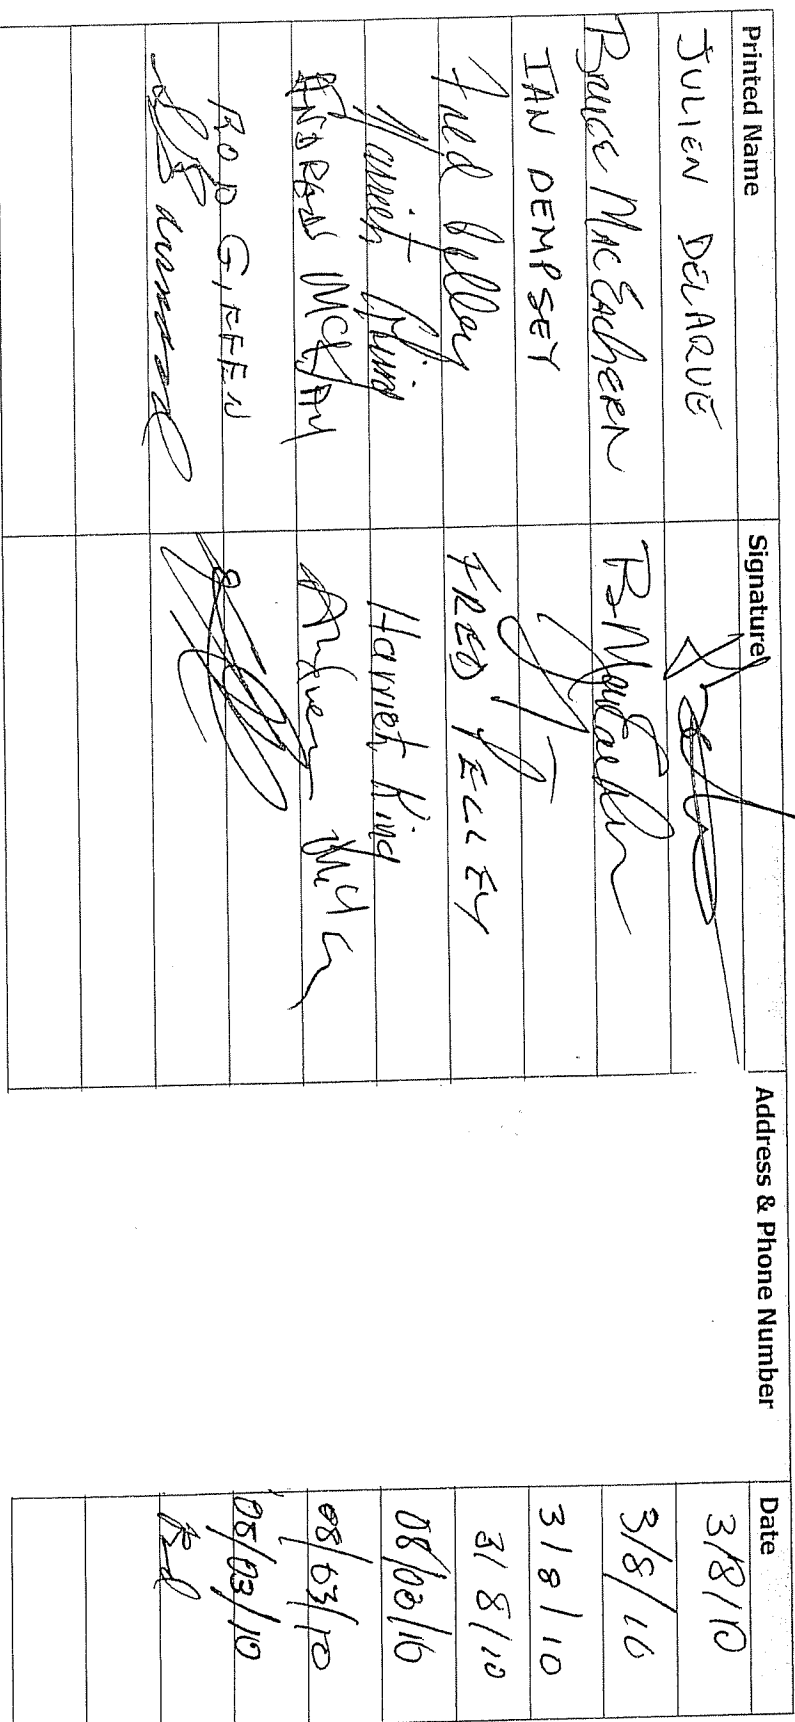 Printed Name Signature Address & Phone Number Date
JULIEN DELARUE 3/8/10
Bruce MacEachern B MacEachern 3/8/10
IAN DEMPSEY 3/8/10
Fred Pelley FRED PELLEY 3/8/10
Harriet King Harriet King 08/03/10
ANDREW MCKAY Andrew McKay 08/03/10
ROD GIFFEN 08/03/10